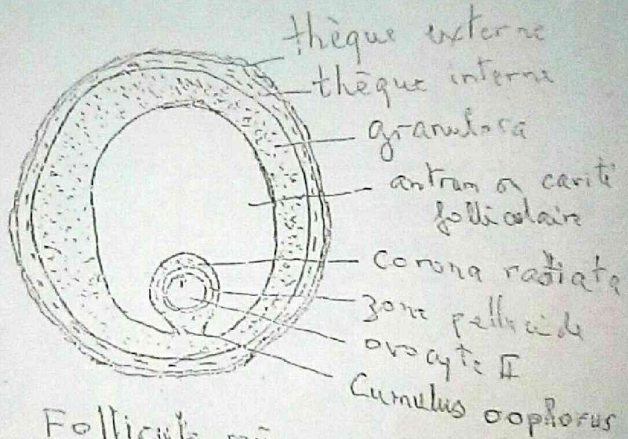 thèque externe
thèque interne
granulosa
antrum ou cavité
folliculaire
corona radiata
zone pellucide
ovocyte II
Cumulus oophorus
Follicule